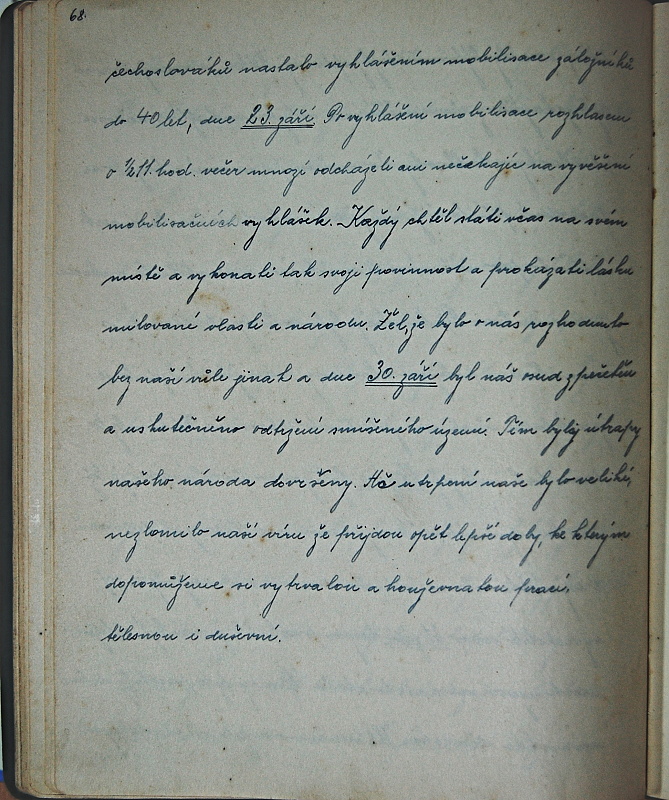 68.
čechoslováků nastalo vyhlášením mobilisace záložníků
do 40 let, dne 23. září. Po vyhlášení mobilisace rozhlasem
o ½11. hod. večer mnozí odcházeli ani nečekajíc na vyvěšení
mobilisačních vyhlášek. Každý chtěl státi včas na svém
místě a vykonati tak svoji povinnost a prokázati lásku
milované vlasti a národu. Žel, že bylo o nás rozhodnuto
bez naší vůle jinak a dne 30. září byl náš osud zpečetěn
a uskutečněno odtržení smíšeného území. Tím byly útrapy
našeho národa dovršeny. Ač utrpení naše bylo veliké,
nezlomilo naší víru že přijdou opět lepší doby, ke kterým
dopomůžeme si vytrvalou a houževnatou prací,
tělesnou i duševní.